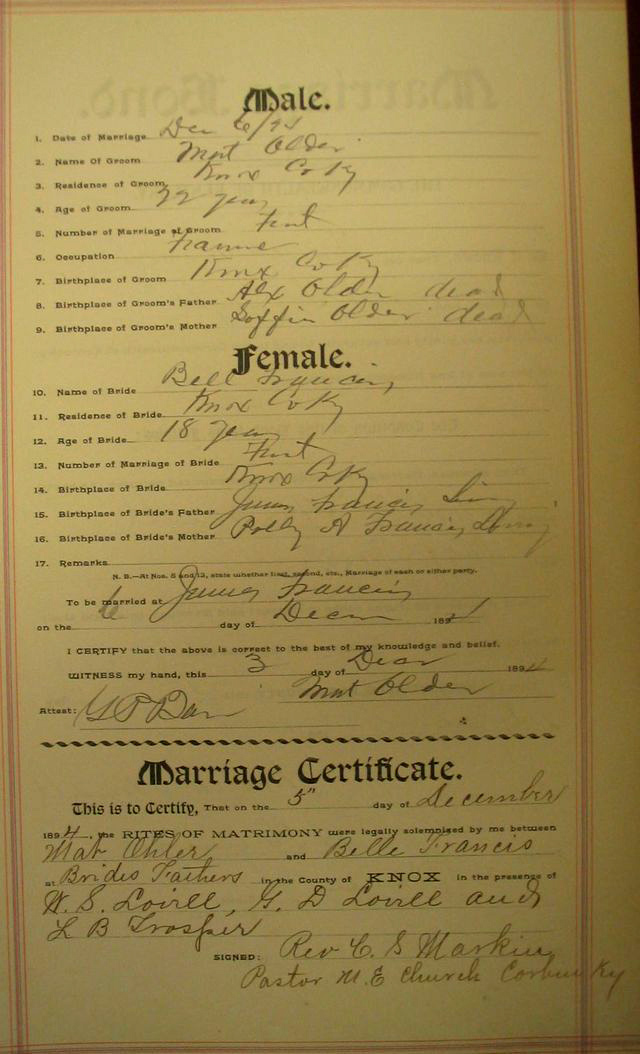 Male.
1. Date of Marriage Dec 6/94
2. Name Of Groom Mat Older
3. Residence of Groom Knox Co Ky
4. Age of Groom 22 years
5. Number of Marriage of Groom First
6. Occupation
7. Birthplace of Groom Knox Co Ky
8. Birthplace of Groom's Father Alx Older dead
9. Birthplace of Groom's Mother Older dead
Female.
10. Name of Bride Bell Francis
11. Residence of Bride Knox Co Ky
12. Age of Bride 18 years
13. Number of Marriage of Bride First
14. Birthplace of Bride Knox Co Ky
15. Birthplace of Bride's Father James Francis Living
16. Birthplace of Bride's Mother Polly A Francis Living
17. Remarks
N. B.—At Nos. 5 and 13, state whether first, second, etc., Marriage of each or either party.
To be married at James Francis
on the 6 day of Decm 1894
I CERTIFY that the above is correct to the best of my knowledge and belief.
WITNESS my hand, this 3 day of Decr 1894
Mat Older
Attest:
Marriage Certificate.
This is to Certify, That on the 5" day of December
1894, the RITES OF MATRIMONY were legally solemnized by me between
Mat Ohler and Belle Francis
at Brides Fathers in the County of KNOX in the presence of
W. S. Lovill, G. D Lovill and
L B Trosper
SIGNED: Rev C. S Markin
Pastor M. E Church Corbin Ky